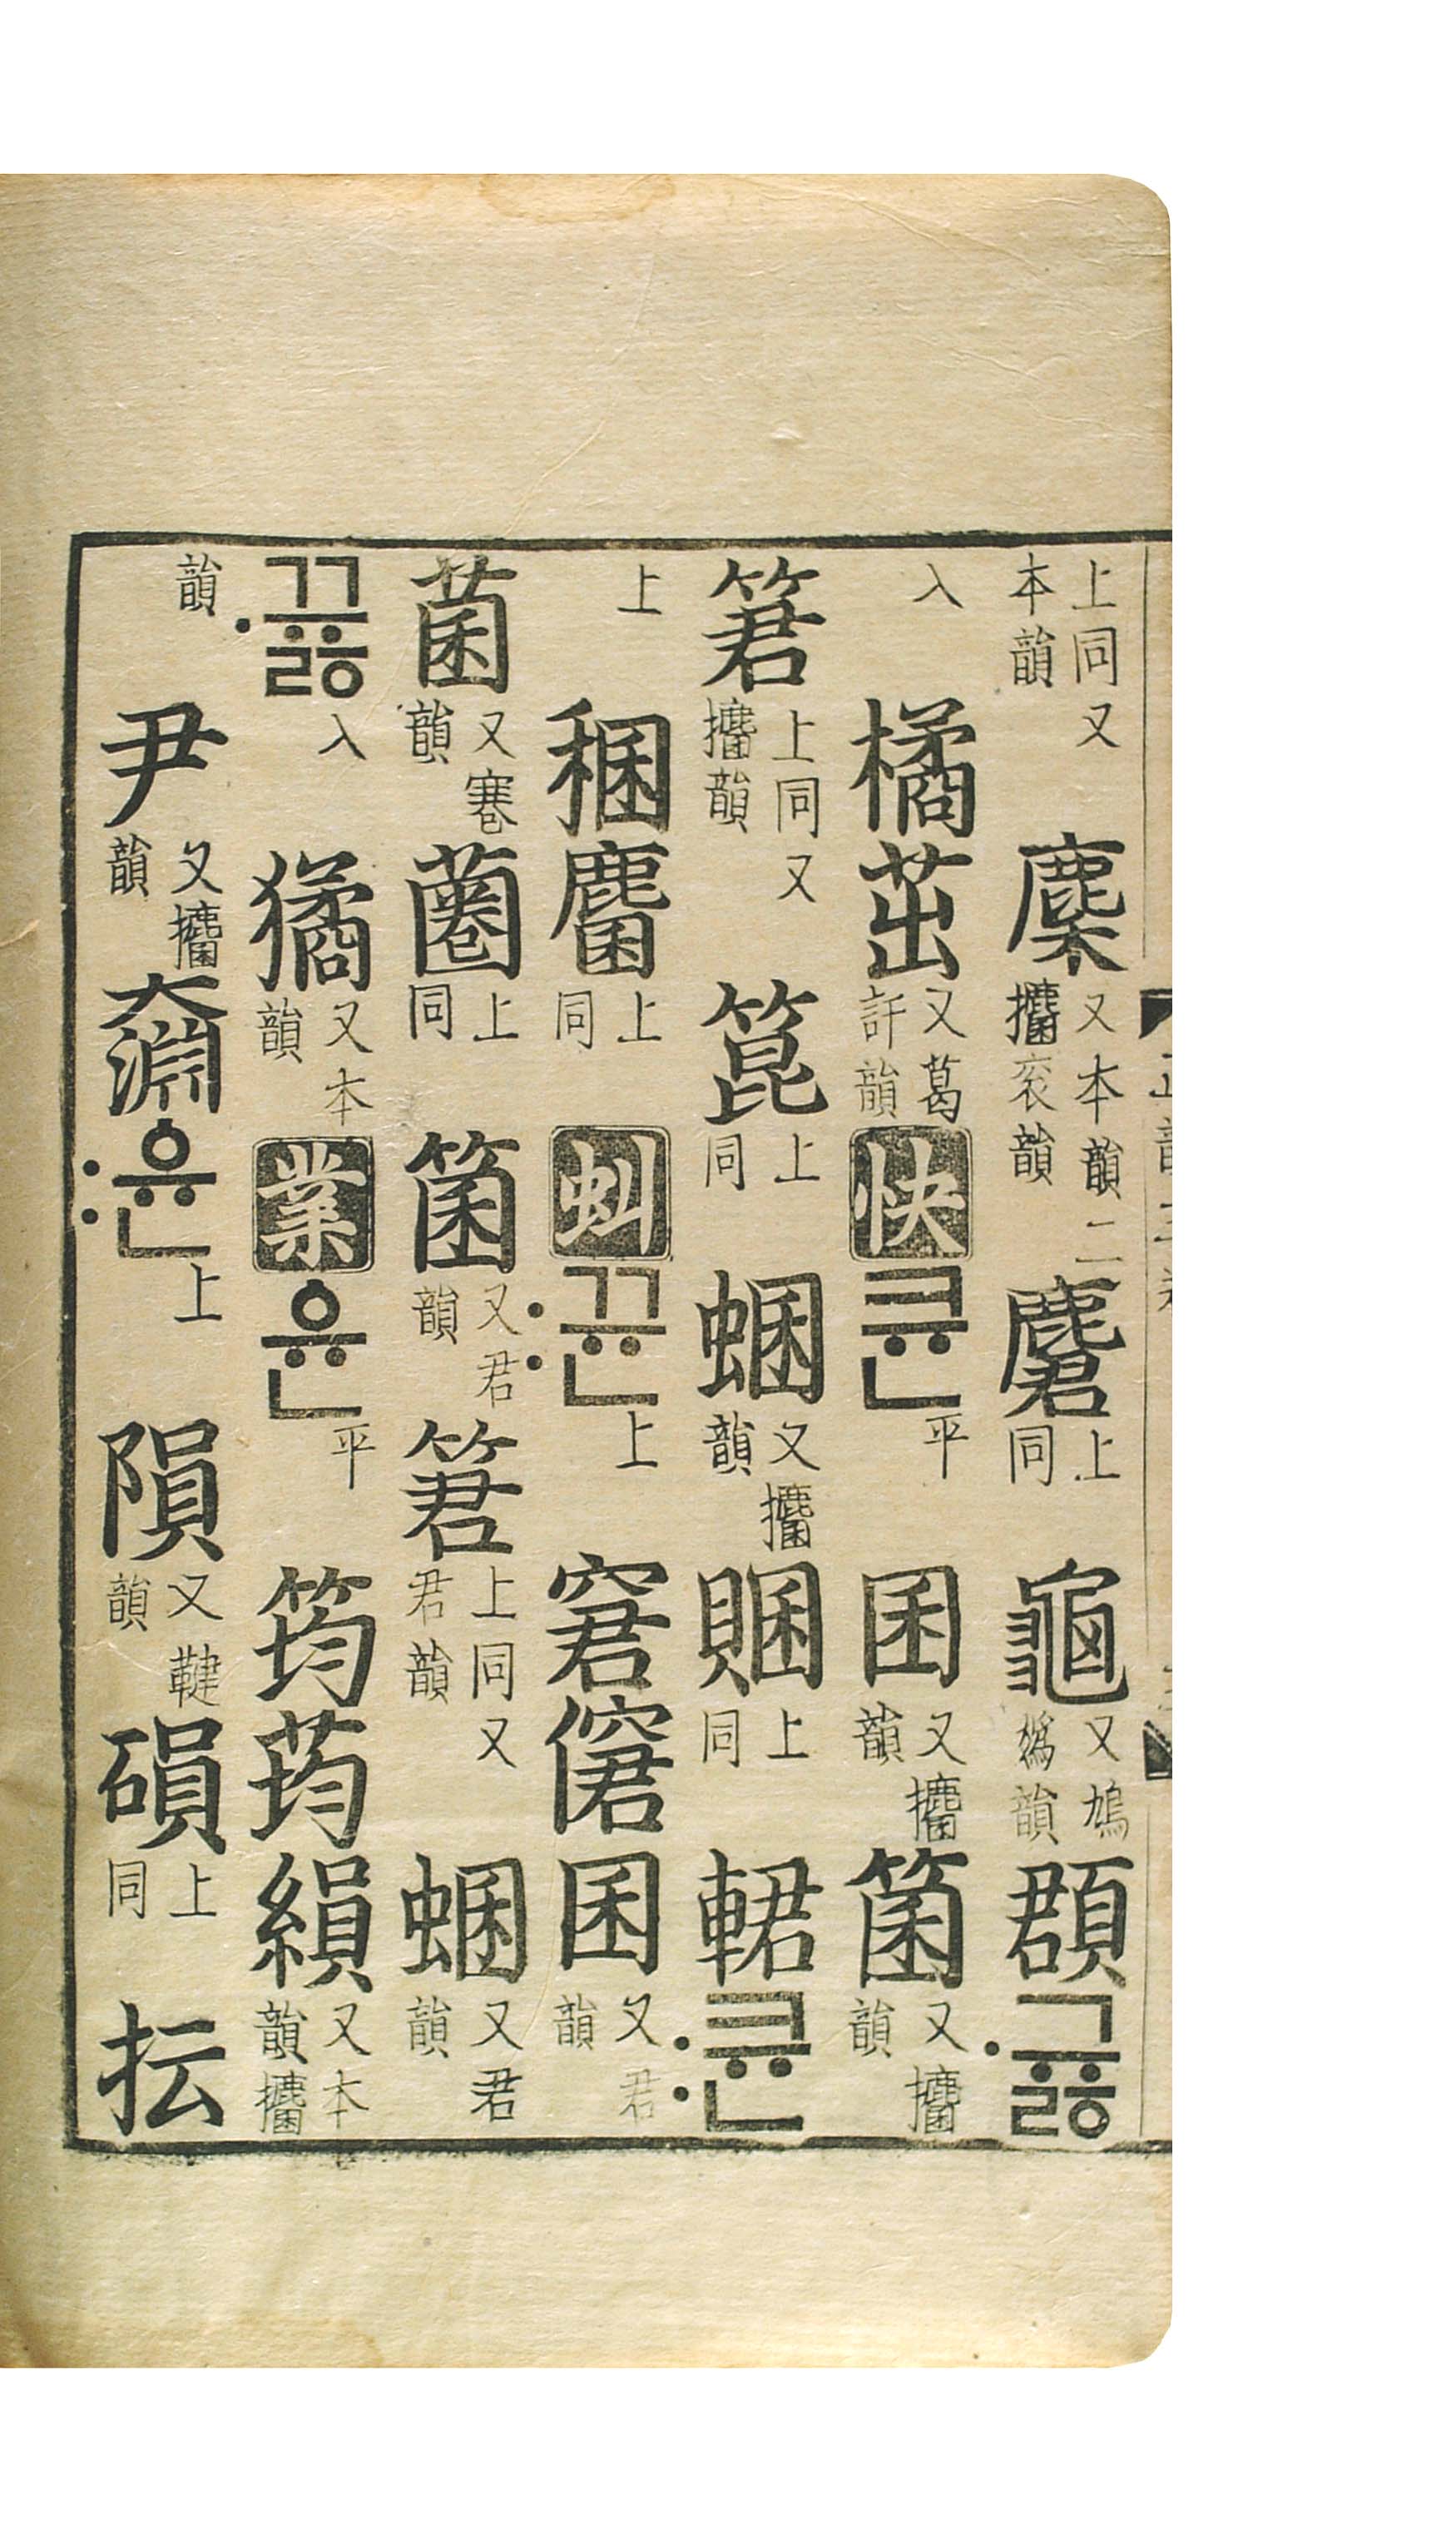 上同又本韻麇又本韻二攟袞韻麏上同龜又鳩嬀韻頵〮규ᇙ
入橘茁又葛訐韻快큔平囷又攟韻箘又攟韻
䇹上同又攟韻箟上同蜠又攟韻上同輑〯큔
上稛麕上同虯〯뀬上窘僒囷又君韻
菌又寋韻蔨上同箘又君韻䇹上同又君韻蜠又君韻
〮뀨ᇙ入獝又本韻業ᅌᅲᆫ平筠荺縜又本韻攟
韻尹又攟韻奫〯ᅌᅲᆫ上隕又鞬韻磒上同抎